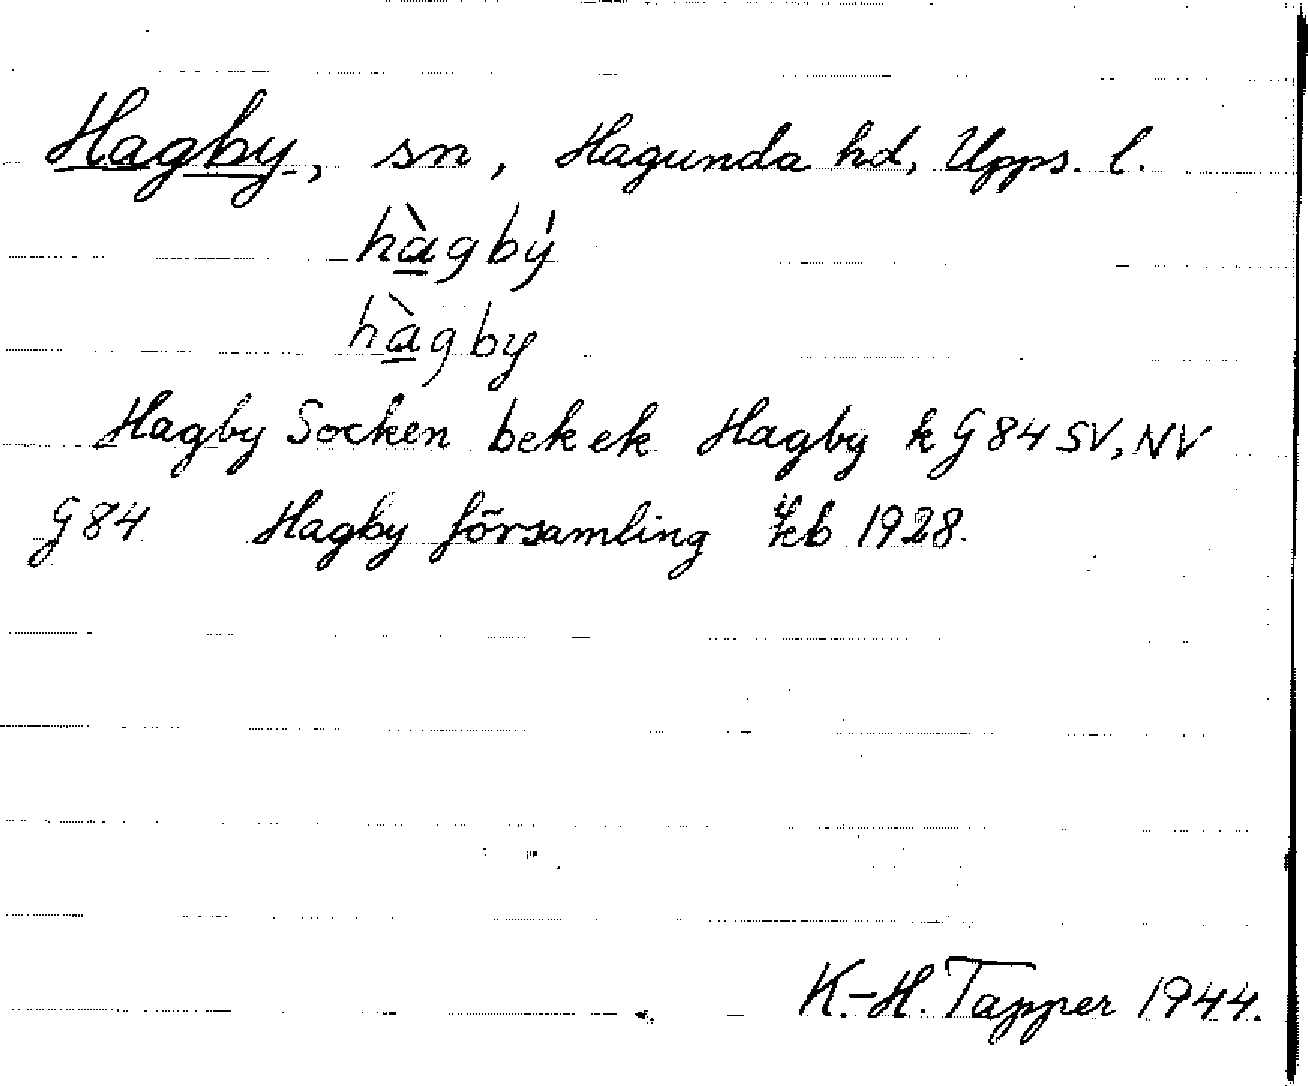 Hagby, sn, Hagunda hd, Upps. l.
hàgbý
hàgby
Hagby Socken bek ek Hagby k G 84 SV, NV
G 84 Hagby församling kb 1928.
K.-H. Tapper 1944.